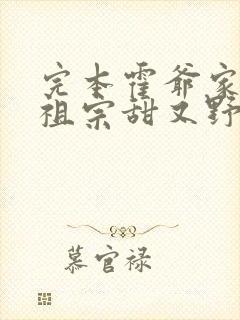 完本霍爷家
祖宗甜又野
慕官禄